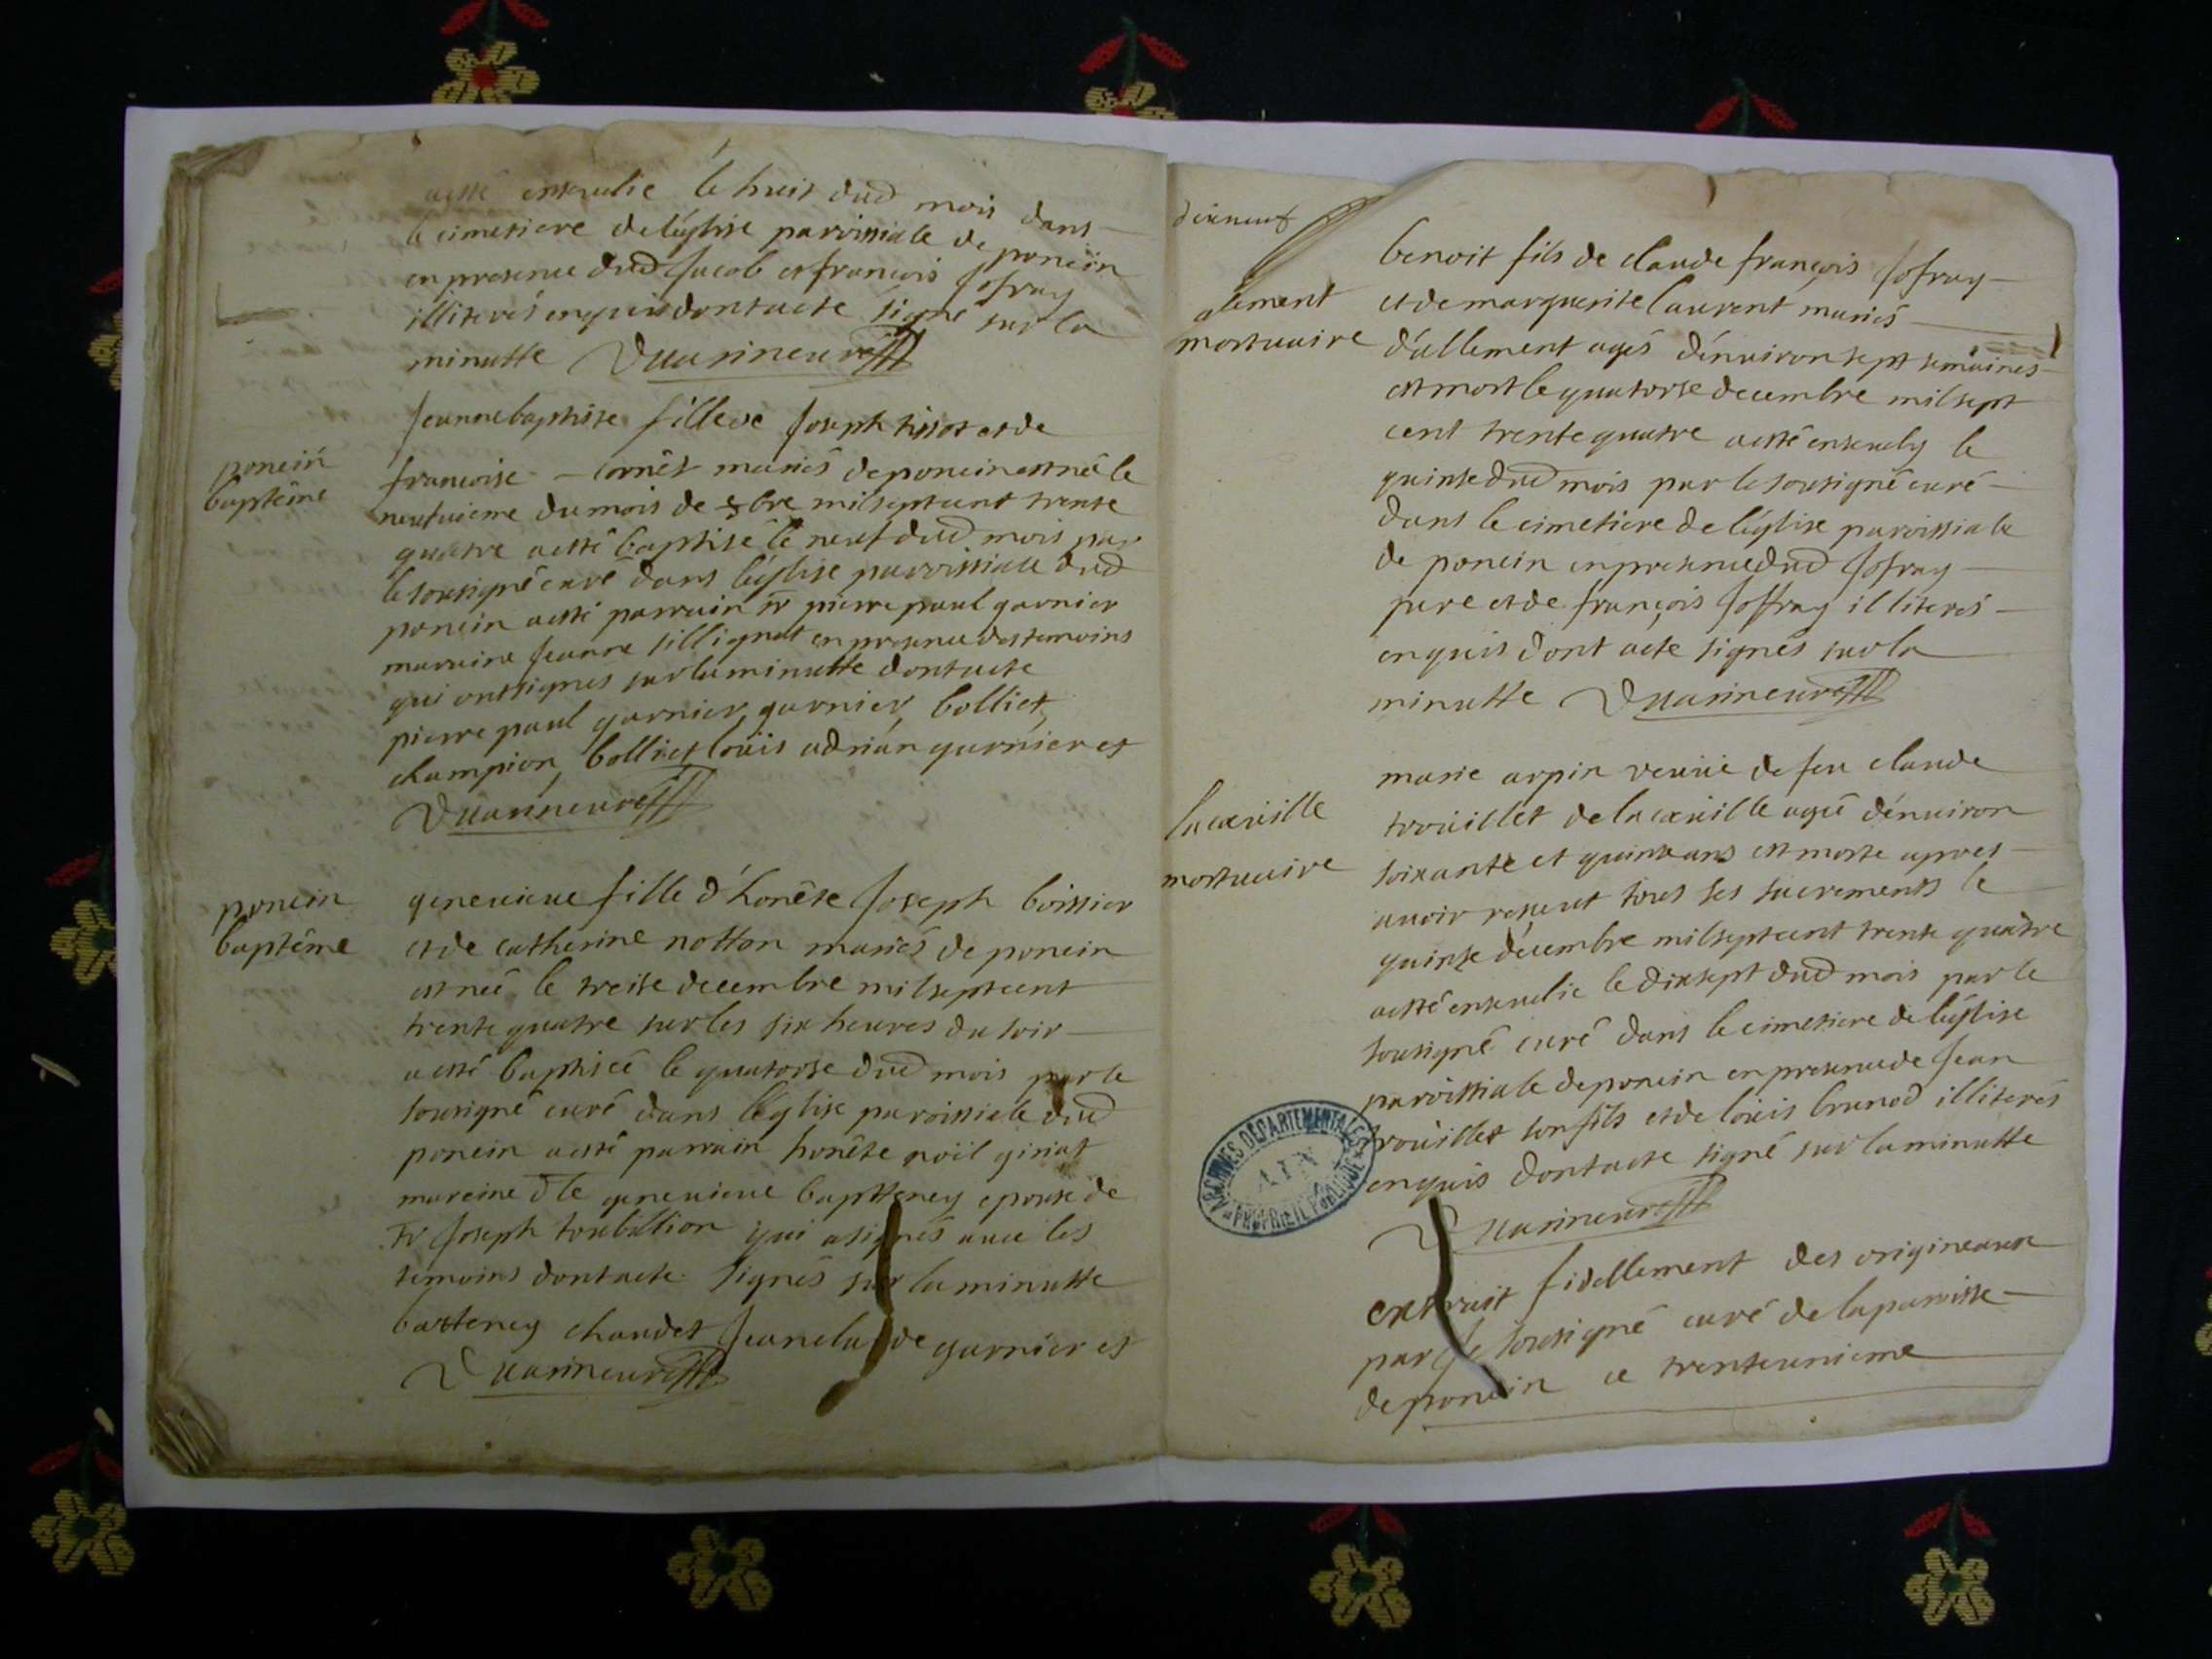 aesté enseuelie le huit dud mois dans
le cimetiere de l'église paroissiale de poncin
en presence dud Jacob et francois Jofray
illiterés enquis dont acte signé sur la
minutte Duarineur
poncin
baptême
Jeanne baptiste fille de Joseph tissot et de
francoise cornêt mariés de poncin est née le
neufuieme du mois de xbre mil sept cent trente
quatre aesté baptisé le neuf dud mois par
le sousigné curé dans l'église paroissiale dud
poncin aesté parrain sr pierre paul garnier
maraine Jeanne sillignat en presence des temoins
qui ont signés sur la minutte dont acte
pierre paul garnier, garnier, bolliet,
champion, bolliet, loüis adrian garnier et
Duarineur
poncin
baptême
geneuieue fille d'honête Joseph boissier
et de catherine notton mariés de poncin
est neé le treise decembre mil sept cent
trente quatre sur les six heures du soir
aesté baptiseé le quatorse dud mois par le
sousigné curé dans l'église paroissiale dud
poncin aesté parrain honête noïl giriat
mareine dlle geneuieue bapsteney epouse de
sr Joseph torbillion qui a signés auec les
temoins dont acte signés sur la minutte
batteney chaudet Jean claude garnier et
Duarineur
dixneuf
alement
mortuaire
benoit fils de claude françois Jofray
et de marguerite laurent mariés
d'allement agés d'enuiron sept semaines
est mort le quatorse decembre mil sept
cent trente quatre aesté enseuely le
quinse dud mois par le sousigné curé
dans le cimetiere de l'église paroissiale
de poncin en presence dud Jofray
pere et de françois Joffray illiterés
enquis dont acte signés sur la
minutte Duarineur
la cueille
mortuaire
marie arpin veuüe de feu claude
troüillet de la cueille ageé d'enuiron
soixante et quinse ans est morte apres
auoir reçeut tous ses sacrements le
quinse decembre mil sept cent trente quatre
aesté enseuelie le dixsept dud mois par le
sousigné curé dans le cimetiere de l'église
paroissiale de poncin en presence de Jean
troüillet son fils et de loüis brunod illiterés
enquis dont acte signé sur la minutte
Duarineur
ARCHIVES DÉPARTEMENTALES
AIN
PROPRIÉTÉ PUBLIQUE
extrait fidellement des origineaux
par Je sousigné curé de la paroisse
de poncin ce trente unieme